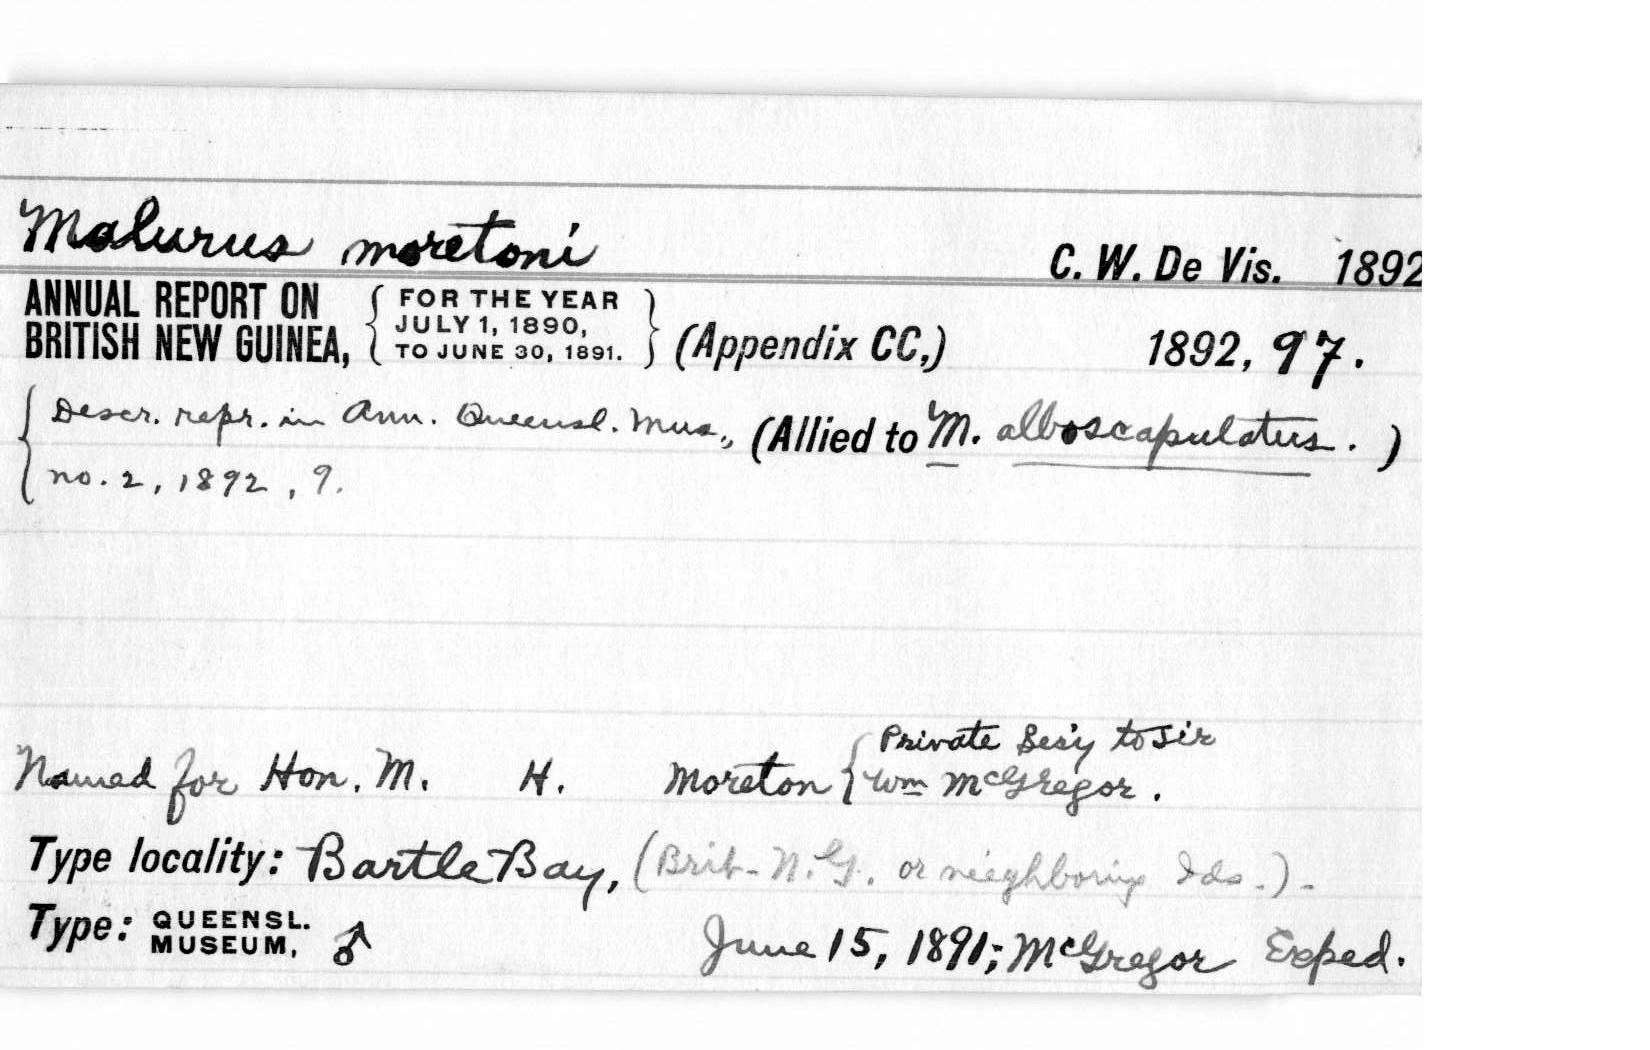 Malurus moretoni C. W. De Vis. 1892
ANNUAL REPORT ON { FOR THE YEAR
BRITISH NEW GUINEA, JULY 1, 1890,
TO JUNE 30, 1891. } (Appendix CC,) 1892, 97.
{ Descr. repr. in Ann. Queensl. Mus., (Allied to M. alboscapulatus. )
no. 2, 1892, 9.
Private Sec'y to Sir
Named for Hon. M. H. Moreton { Wm McGregor.
Type locality: Bartle Bay, (Brit. N. G. or neighboring Ids.).
Type: QUEENSL. MUSEUM, ♂ June 15, 1891; McGregor Exped.